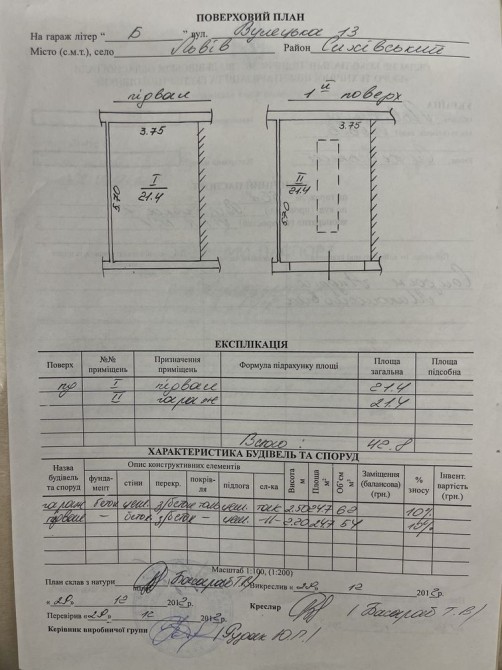 ПОВЕРХОВИЙ ПЛАН
На гараж літер “ Б ” вул. Вулецька 13
Місто (с.м.т.), село Львів Район Сихівський
підвал 1й поверх
3.75 3.75
I II
21.4 21.4
5.70 5.70
ЕКСПЛІКАЦІЯ
Поверх №№ приміщень Призначення приміщень Формула підрахунку площі Площа загальна Площа підсобна
пд I підвал 21.4
II гараж 21.4
Всього: 42.8
ХАРАКТЕРИСТИКА БУДІВЕЛЬ ТА СПОРУД
Назва будівель та споруд Опис конструктивних елементів Висота м Площа м² Об'єм м³ Заміщення (балансова) (грн.) % зносу Інвент. вартість (грн.)
фунда-мент стіни перекр. покрів-ля підлога ел-ка
гараж бетон цегл. з/бетон цем. так 2.50 24.7 62 10%
підвал – бетон з/бетон – цем. -//- 2.20 24.7 54 10%
Масштаб 1:100, (1:200)
План склав з натури / Басараб Т.В./ Викреслив « 28 » 12 2012р.
« 28 » 12 2012р. Кресляр / Басараб Т.В/
Перевірив « 28 » 12 2012р.
Керівник виробничої групи